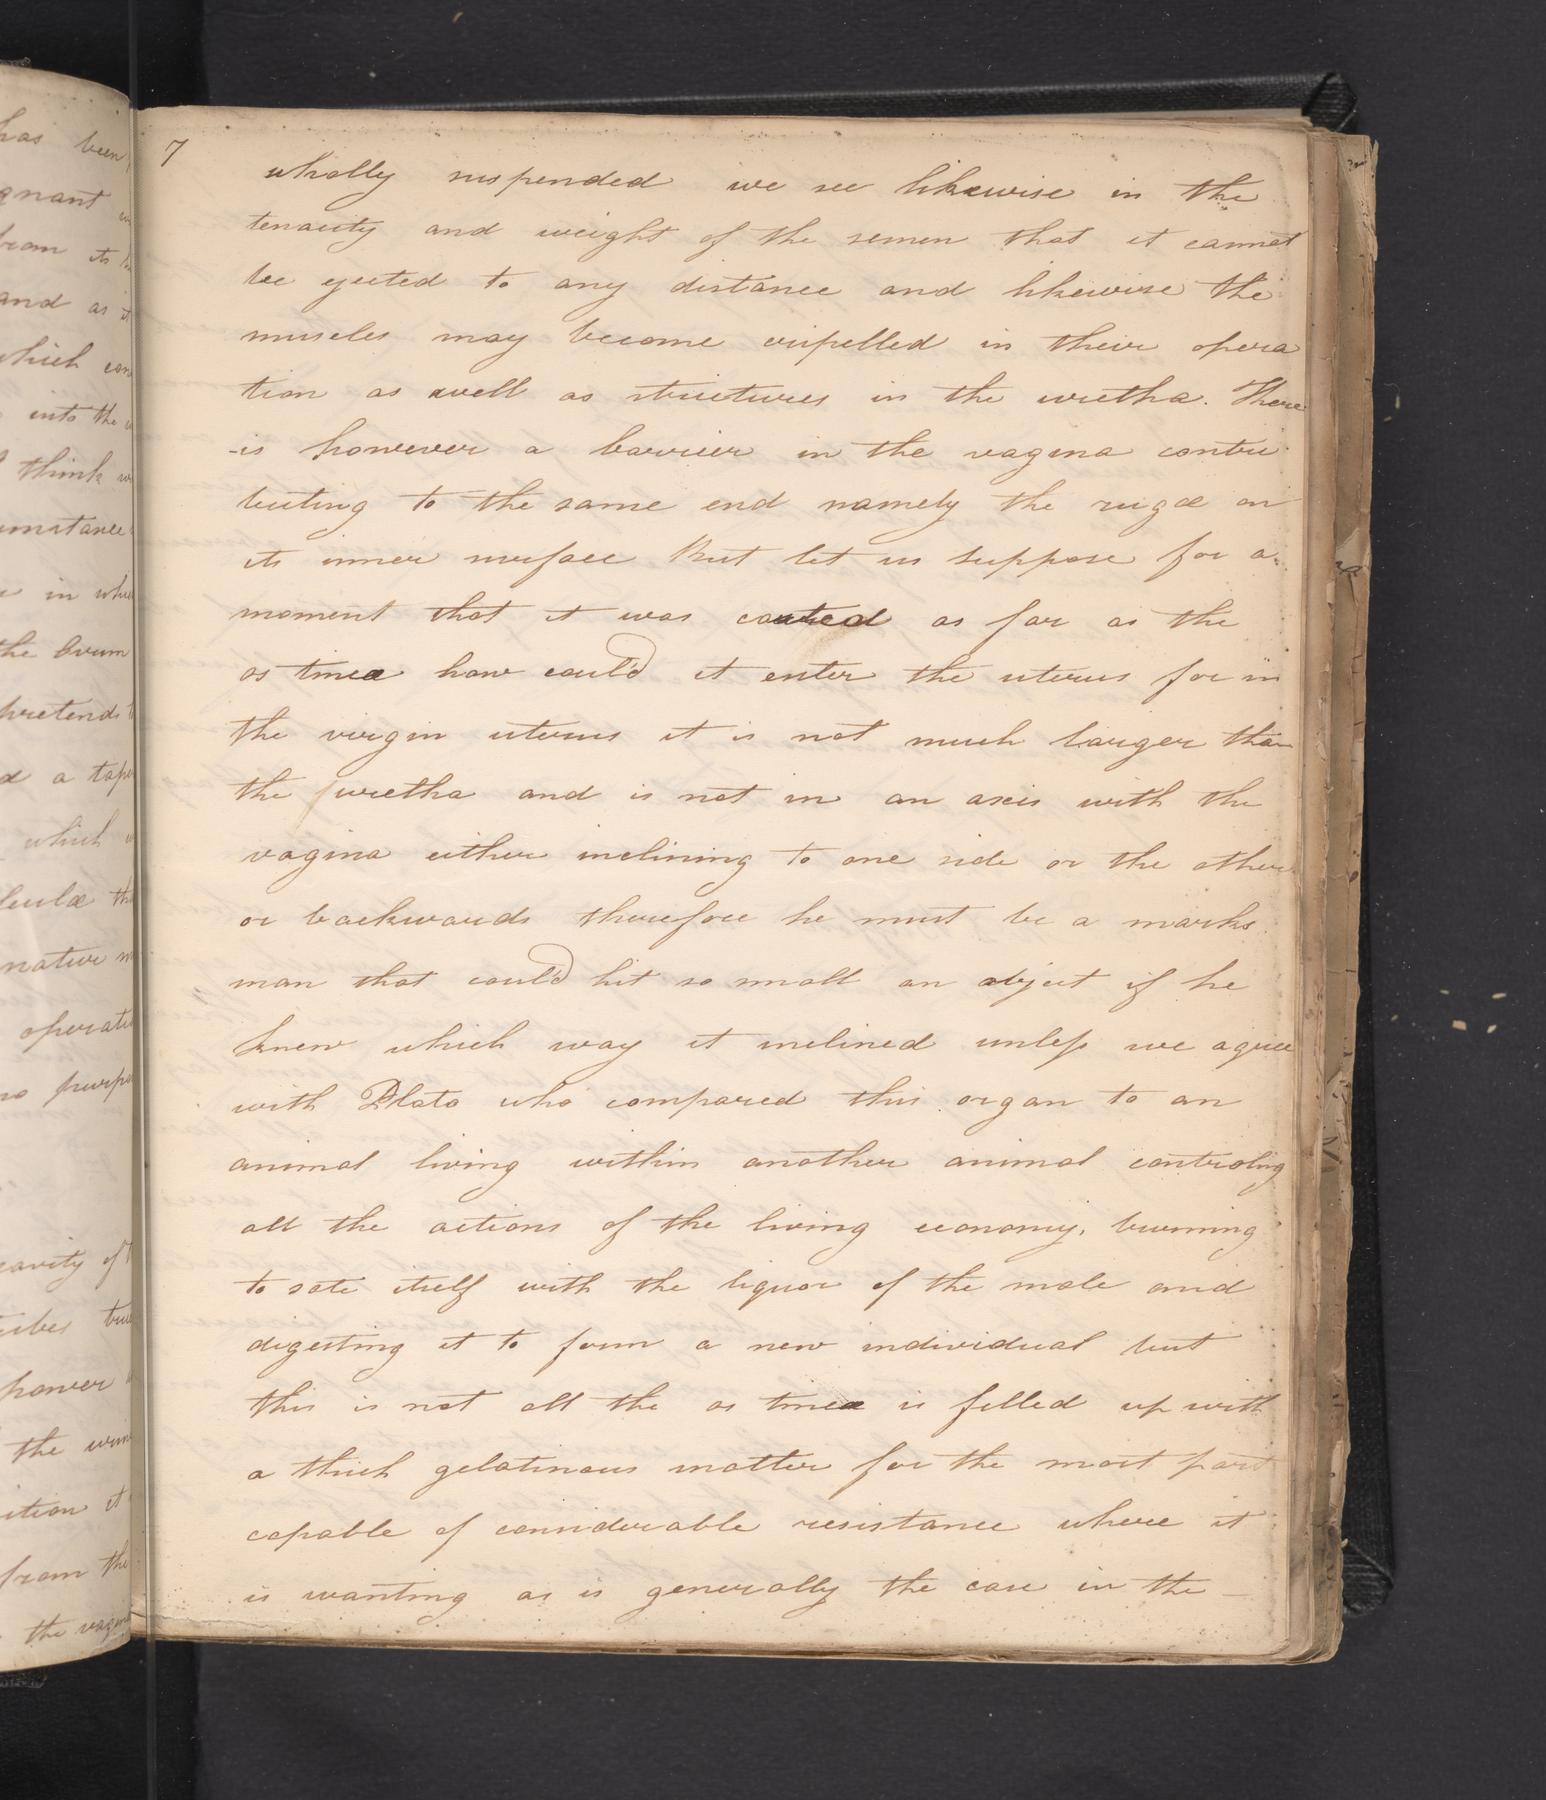 7
wholly suspended we see likewise in the
tenacity and weight of the semen that it cannot
be ejected to any distance and likewise the
muscles may become cripelled in their opera
tion as well as strictures in the uretha. There
is however a barrier in the vagina contri
buting to the same end namely the rugæ on
its inner surface But let us suppose for a
moment that it was as far as the
os tincæ how could it enter the uterus for in
the virgin uterus it is not much larger than
the uretha and is not in an axis with the
vagina either inclining to one side or the other
or backwards therefore he must be a marks
man that could hit so small an object if he
knew which way it inclined unless we agree
with Plato who compared this organ to an
animal living within another animal controling
all the actions of the living economy, burning
to sate itself with the liquor of the male and
digesting it to form a new individual but
this is not all the os tincæ is filled up with
a thick gelatinous matter for the most part
capable of considerable resistance where it
is wanting as is generally the case in the
has been
from its
and as it
which
into the
think
in
the Ovum
pretends
a
which
native
cavity of
power
the
ition it
from the
the